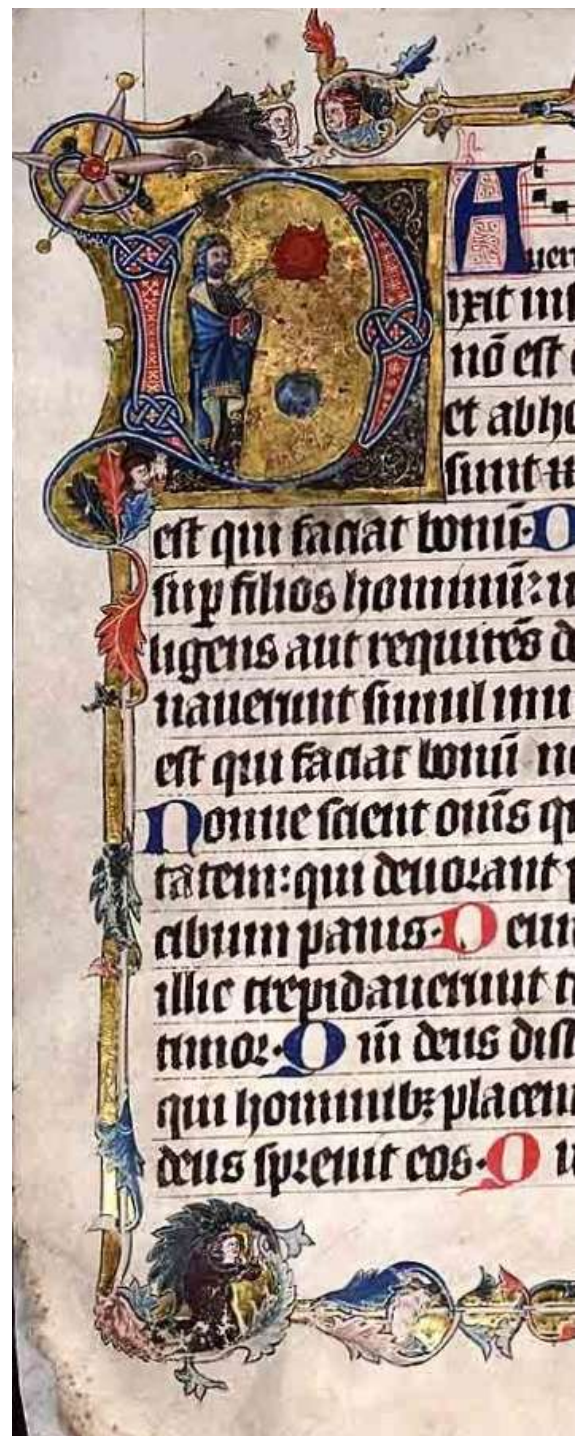 Auer
Dixit ins
nō est
et abho
sunt
est qui faciat bonū. D
sup filios hominū: u
ligens aut requirēs d
nauerunt simul inu
est qui faciat bonū no
Nonne scient om̄s qu
tatem: qui deuorant p
cibum panis. Deum
illic trepidauerunt ti
timor. Qm̄ deus diss
qui hominibꝫ placent
deus spreuit eos. Q